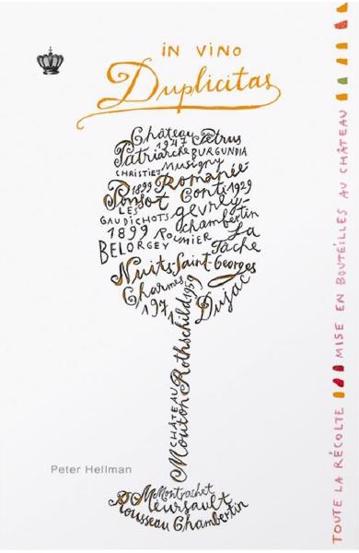 in vino
Duplicitas
Château Pétrus
1947
Patriarche BURGUNDIA
CHRISTIES Musigny
1899 Romanée
Ponsot Conti 1929
LES gevrey-
GAUDICHOTS chambertin
1899 Roumier La
BELORGEY Tâche
Nuits-Saint-Georges
Charmes 1959
1971 Dujac
CHÂTEAU
Mouton Rothschild
Montrachet
Meursault
Rousseau Chambertin
Peter Hellman
TOUTE LA RÉCOLTE MISE EN BOUTÉILLES AU CHÂTEAU